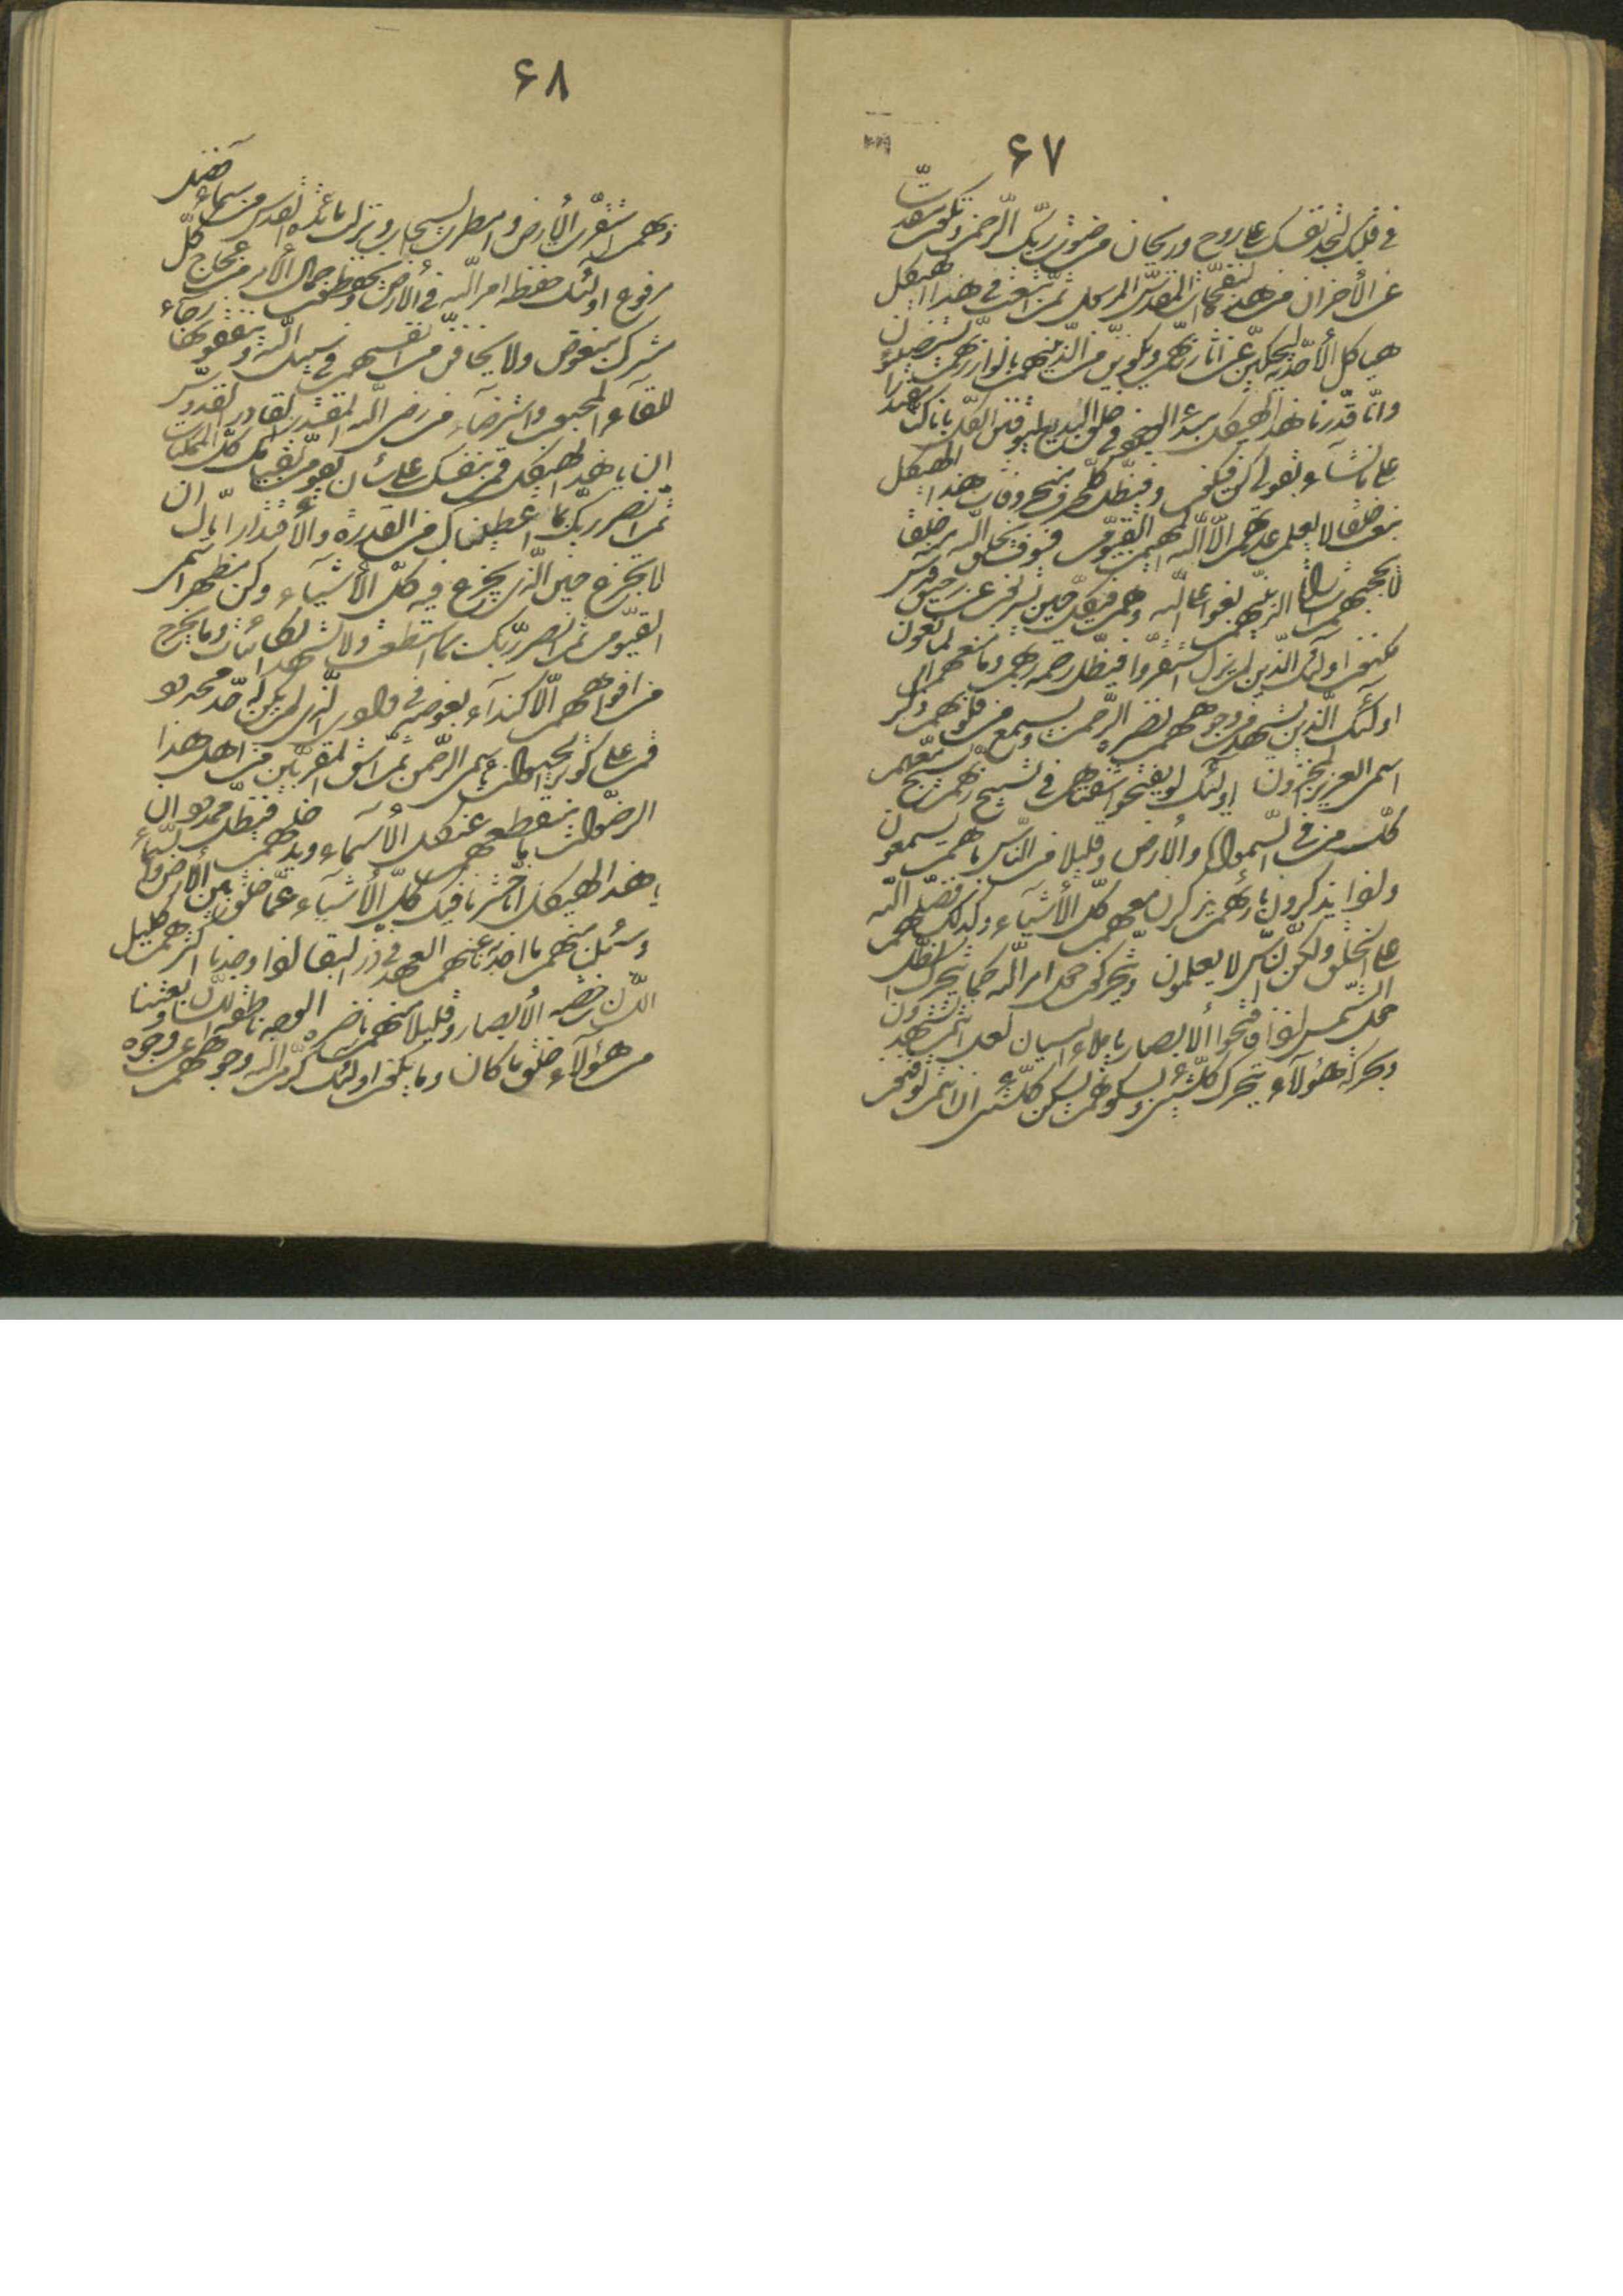 ۶۷
في قلبك لتجد نفسك على روح وريحان من رضوان ربّك الرّحمن وتكون مقدّسا
عن الأحزان من هذه النفحات المقدّس المرسل ثمّ ابعث في هذا الهيكل
هياكل الأحديّة ليحكينّ عن اثار ربّهم ويكوننّ من الّذينهم بانوار ربّهم يستضيئون
وانّا قدّرنا هذا الهيكل مبدء الوجود في خلق البديع ليوقننّ الكلّ بانّا كنّا مقتدرا
على ما نشآء بقولي كن فيكون وفي ظلّ كلّ حرف من حروفات هذا الهيكل
نبعث خلقا لا يعلم عدّتهم الّا اللّه المهيمن القيّوم فسوف يخلق اللّه منه خلقا
لا تحجبهم اشارات الّذينهم بغوا على اللّه وهم في كلّ حين يشربنّ عن رحيق
مكنون اولئك الّذين لم يزل استقرّوا في ظلّ رحمة ربّهم وما منعهم المانعون
اولئك الّذين تشهد من وجوههم نضرة الرّحمن ويسمع من قلوبهم ذكر
اسمي العزيز المخزون اولئك لو يفتحوا شفتاهم في تسبيح ربّهم يسبّح معهم
كلّ من في السّموات والأرض وقليلا من النّاس ما هم يسمعون
ولو يذكرون بارئهم يذكرن معهم كلّ الأشيآء وكذلك فضّلهم اللّه
على الخلق ولكنّ النّاس لا يعلمون ويتحرّكنّ حول امر اللّه كما يتحرّك الظّل
حول الشّمس اذا فافتحوا الأبصار يا ملأ البيان لعلّ انتم تشهدون
وبحركة هؤلآء يتحرّك كلّشيئ وبسكونهم يسكن كلّشيئ ان انتم توقنون
۶۸
وبهم استقرّت الأرض وامطرت السحاب ونزلت مائدة القدس من سمآء فضل
مرفوع اولئك حفظة امر اللّه في الأرض يحفظون جمال الأمر عن غبار كلّ
مشرك مبغوض ولا يخافنّ من انفسهم في سبيل اللّه وينفقونها رجآء
للقآء المحبوب واسترضآء من رضى اللّه المقتدر القادر القدّوس
ان يا هذا الهيكل قم بنفسك على شأن يقومنّ بقيامك كلّ الممكنات
ثمّ انصر ربّك بما اعطيناك من القدرة والأقتدار ايّاك ان
لا تجزع حين الّذي يجزع فيه كلّ الأشيآء وكن مظهر اسمي
القيّوم ثمّ انصر ربّك بما استطعت ولا تشهد الكائنات وما يخرج
من افواههم الّا كندآء بعوضة في وادي الّذي لم يكن له حدّ محدود
قم على كوثر الحيوان باسمي الرّحمن ثمّ اسق المقرّبين من اهل هذا
الرضوان ما ينقطعهم عن كلّ الأسمآء ويدخلهم في ظلّ ممدود ان
يا هذا الهيكل انّا حشرنا فيك كلّ الأشيآء عمّا خلق بين الأرض والسّمآء
وسئلنا منهم ما اخذنا عنهم العهد في ذرّ البقا اذا وجدنا اكثرهم كليل
اللّسان خاضعة الأبصار وقليلا منهم ناضرة الوجه ناطقة اللّسان وبعثنا
من هؤلآء خلق ما كان وما يكون اولئك كرّم اللّه وجوههم عن وجوه